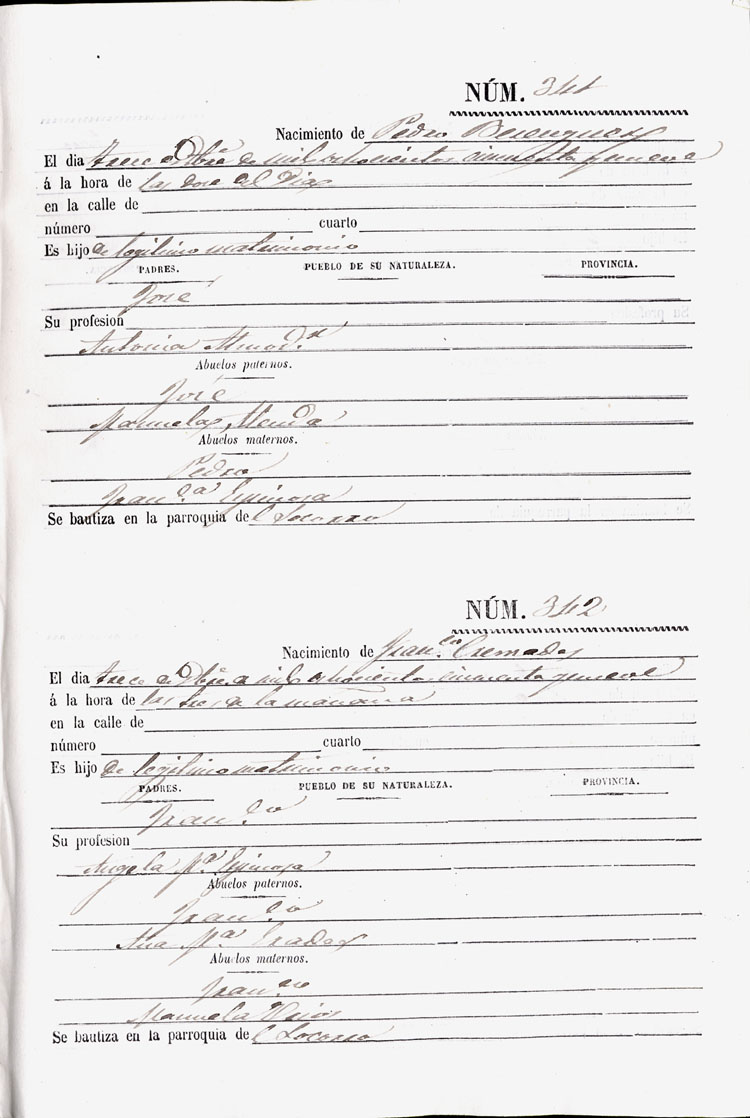 NÚM. 341
Nacimiento de Pedro Berenguer
El dia trece de Dbre. de mil ochocientos cincuenta y nueve
á la hora de las doce del Dia
en la calle de
número cuarto
Es hijo de legitimo matrimonio
PADRES. PUEBLO DE SU NATURALEZA. PROVINCIA.
José
Su profesion
Antonia
Abuelos paternos.
José
Manuela
Abuelos maternos.
Pedro
Fran.ca Espinosa
Se bautiza en la parroquia del Socorro
NÚM. 342
Nacimiento de Fran.co Cremades
El dia trece de Dbre. de mil ochocientos cincuenta y nueve
á la hora de las tres de la mañana
en la calle de
número cuarto
Es hijo de legitimo matrimonio
PADRES. PUEBLO DE SU NATURALEZA. PROVINCIA.
Fran.co
Su profesion
Angela M.a Espinosa
Abuelos paternos.
Fran.co
Ana M.a
Abuelos maternos.
Fran.co
Manuela
Se bautiza en la parroquia del Socorro